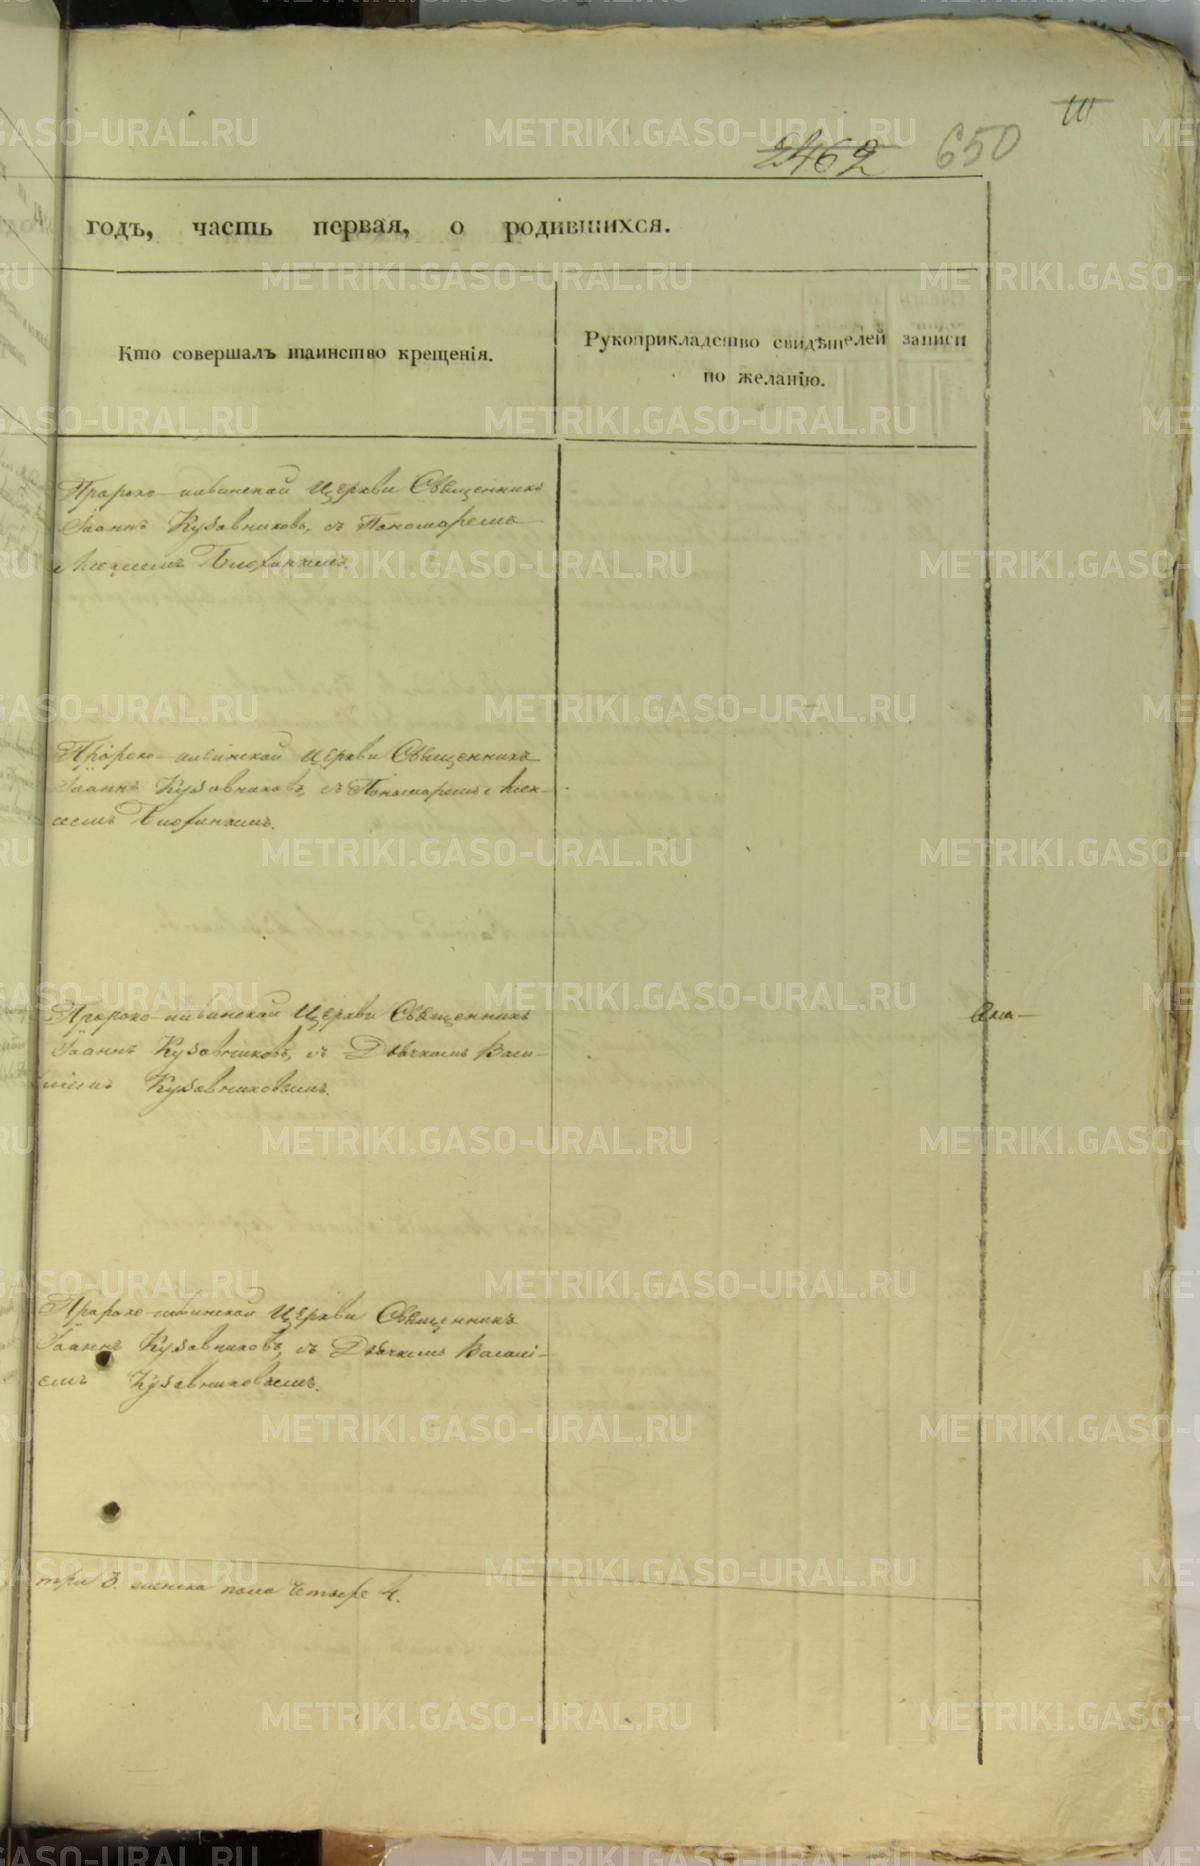 2462 650
годъ, часть первая, о родившихся.
Кто совершалъ таинство крещенія.
Рукоприкладство свидѣтелей записи
по желанію.
Церкви Священникъ
Іоаннъ Кузовниковъ, съ Пономаремъ
Церкви Священникъ
Іоаннъ Кузовниковъ, съ Пономаремъ Алек-
Церкви Священникъ
Іоаннъ Кузовниковъ, съ Дьячкомъ Васи-
Кузовниковымъ.
Церкви Священникъ
Іоаннъ Кузовниковъ, съ Дьячкомъ Василі-
емъ Кузовниковымъ.
три 3. женска пола четыре 4.
METRIKI.GASO-URAL.RU